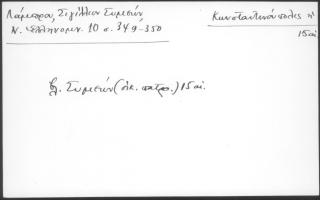 Λάμπρου, Σιγίλλιον Συμεών
Ν. Ἑλληνομν. 10 σ. 349-350
Κωνσταντινουπόλεως
15 αἰ
βλ. Συμεών (οἰκ. πατρ.) 15 αἰ.